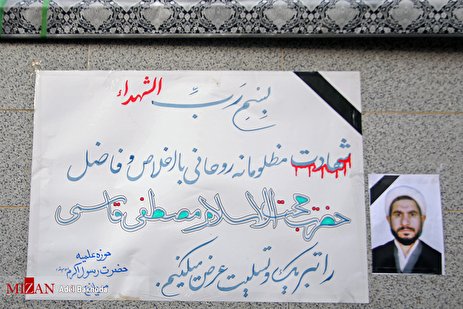 بسم رَبِّ الشهداء
شهادت مظلومانه روحانی بااخلاص و فاضل
حضرت حجت الاسلام مصطفی قاسمی
را تبریک و تسلیت عرض میکنیم.
حوزه علمیه
حضرت رسول اکرم
MIZAN
Adel Bakhoda